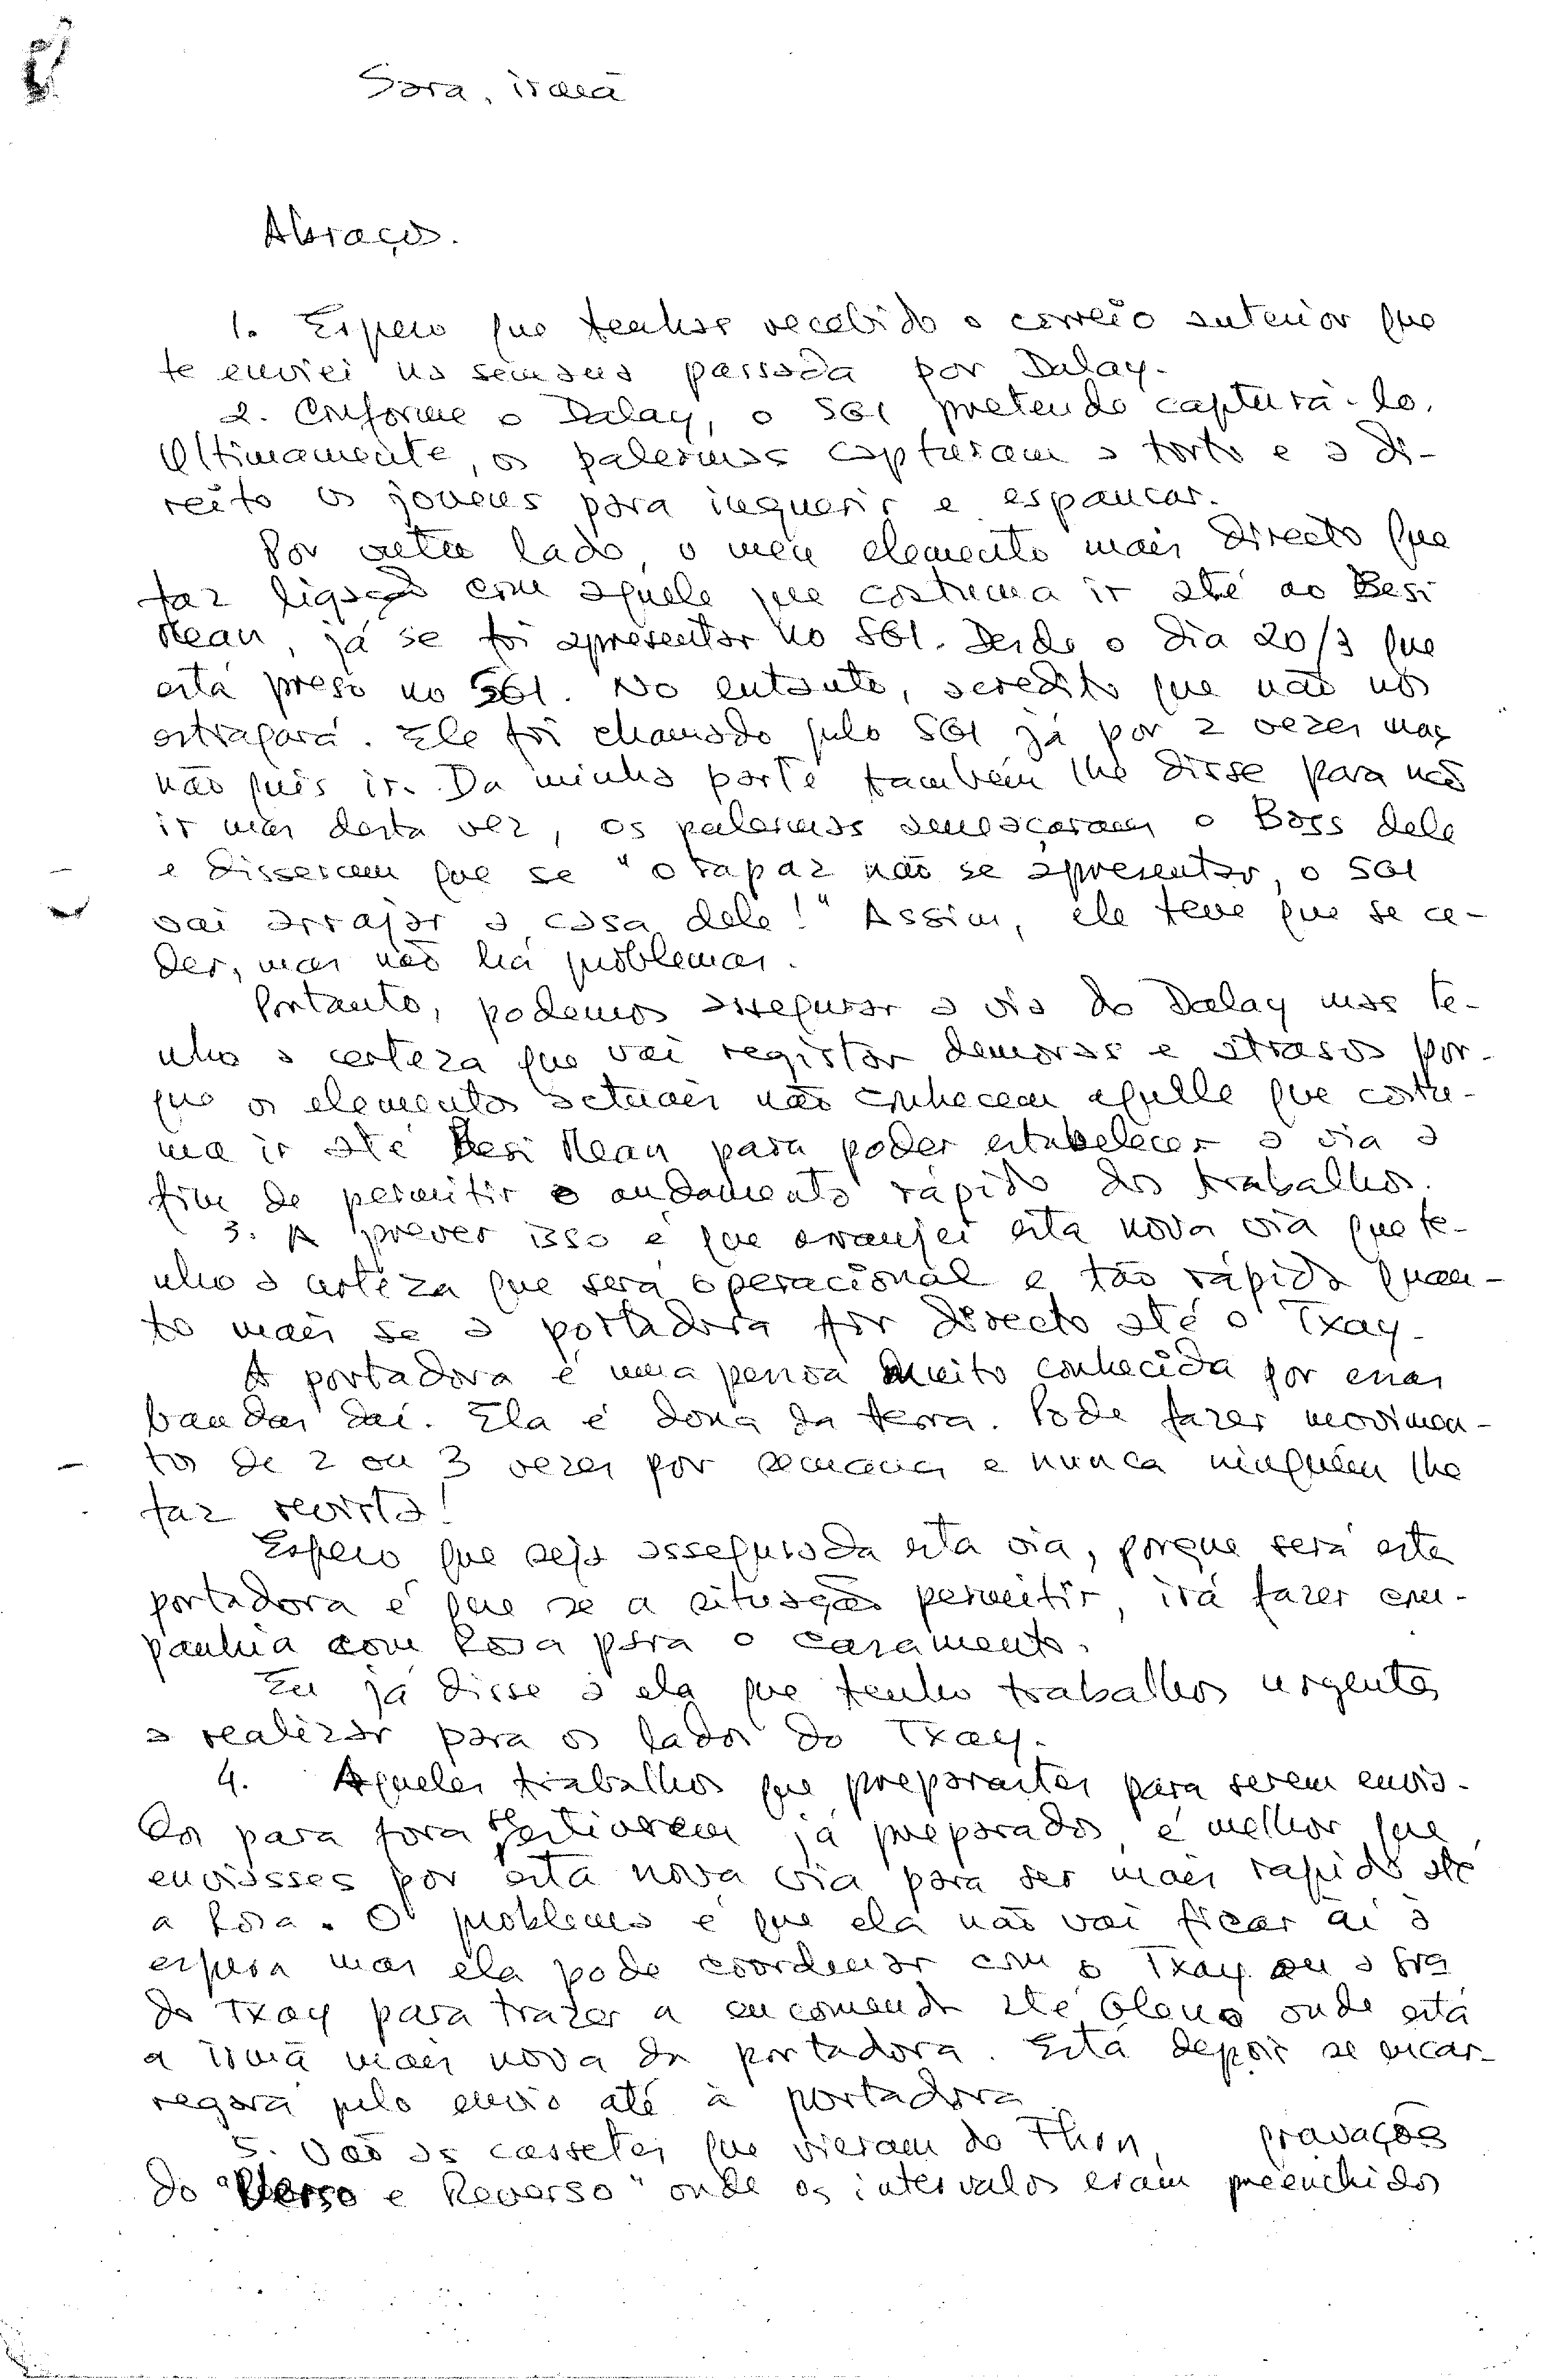 Sara, irmã
Abraços.
1. Espero que tenhas recebido o correio anterior que
te enviei na semana passada por Dalay.
2. Conforme o Dalay, o SGI pretende capturá-lo.
Ultimamente, os palermas capturam a torto e a di-
reito os jovens para inquerir e espancar.
Por outro lado, o meu elemento mais directo que
faz ligação com aquele que costuma ir até ao Besi
Mean, já se foi apresentar no SGI. Desde o dia 20/3 que
está preso no SGI. No entanto, acredito que não nos
estragará. Ele foi chamado pelo SGI já por 2 vezes mas
não quis ir. Da minha parte também lhe disse para não
ir mas desta vez, os palermas ameaçaram o Boss dele
e disseram que se "o rapaz não se apresentar, o SGI
vai arrajar a casa dele!" Assim, ele teve que se ce-
der, mas não há problemas.
Portanto, podemos assegurar a via do Dalay mas te-
nho a certeza que vai registar demoras e atrasos por-
que os elementos actuais não conhecem aquele que costu-
ma ir até Besi Mean para poder estabelecer a via a
fim de permitir o andamento rápido dos trabalhos.
3. A prever isso é que arranjei esta nova via que te-
nho a certeza que será operacional e tão rápida quan-
to mais se a portadora for directo até o Txay.
A portadora é uma pessoa muito conhecida por essas
bandas daí. Ela é dona da terra. Pode fazer movimen-
tos de 2 ou 3 vezes por semana e nunca ninguém lhe
faz revista!
Espero que seja assegurada esta via, porque será esta
portadora é que se a situação permitir, irá fazer com-
panhia com Rosa para o casamento.
Eu já disse a ela que tenho trabalhos urgentes
a realizar para os lados do Txay.
4. Aqueles trabalhos que preparastes para serem envia-
dos para fora se estiverem já preparados é melhor que
enviasses por esta nova via para ser mais rápido até
a Rosa. O problema é que ela não vai ficar aí à
espera mas ela pode coordenar com o Txay ou a Sra
do Txay para trazer a encomenda até Gleno onde está
a irmã mais nova da portadora. Esta depois se encar-
regará pelo envio até à portadora.
5. Vão as cassetes que vieram do Thon, gravações
do "Verso e Reverso" onde os intervalos eram preenchidos